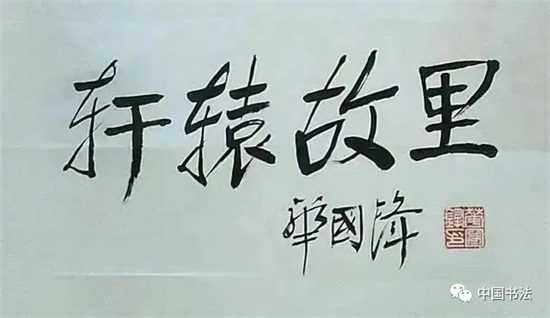 轩辕故里
華國鋒
中国书法